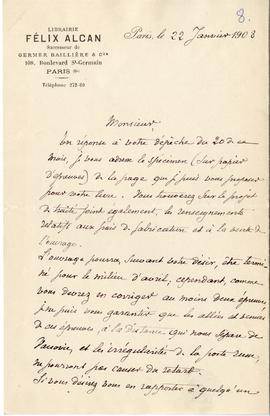 8.
LIBRAIRIE
FÉLIX ALCAN
Successeur de
GERMER BAILLIÈRE & Cie
108, Boulevard St-Germain
PARIS
Téléphone
Paris, le 22 Janvier 1903
Monsieur,
En réponse à votre dépêche du 20 de ce
mois, je vous adresse le specimen (sur papier
d'épreuves) de la page que je puis vous proposer
pour votre livre. Vous trouverez sur le projet
de traité joint également, les renseignements
relatifs aux frais de fabrication et à la vente de
l'ouvrage.
L'ouvrage pourra, suivant votre désir, être terminé
pour le milieu d'avril, cependant, comme
vous devrez en corriger au moins deux épreuves,
je ne puis vous garantir que les allées et venues
de ces épreuves, à la distance qui nous sépare de
Varsovie, et les irrégularités de la poste russe,
ne pourront pas causer du retard.
Si vous désirez vous en rapporter à quelqu'un